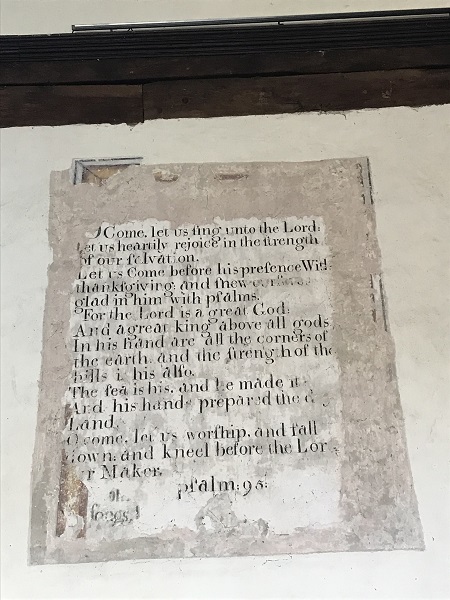 O Come, let us sing unto the Lord:
Let us heartily rejoice in the strength
of our selvation.
Let us Come before his presence With
thanksgiving: and shew ourselves
glad in him with psalms.
For the Lord is a great God:
And a great king above all gods
In his hand are all the corners of
the earth, and the strength of the
hills is his also.
The sea is his, and he made it
And his hands prepared the d
Land.
O come, let us worship, and fall
down: and kneel before the Lor
r Maker.
psalm: 95:
songs,